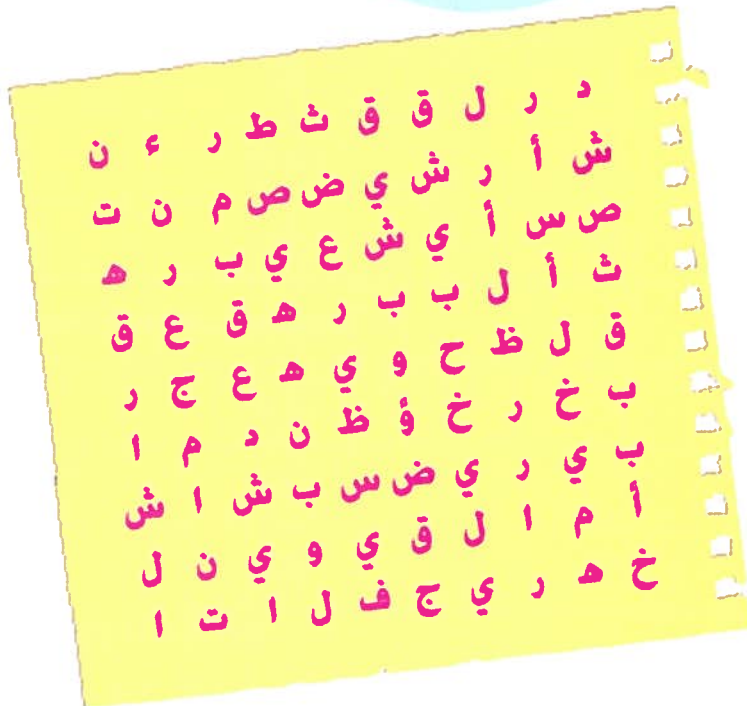 د ر ل ق ق ث ط ر ء ن
ش أ ر ش ي ض ص م ن ت
ص س أ ي ش ع ي ب ر ه
ث أ ل ب ب ر ه ق ع ق
ق ل ظ ح و ي ه ع ج ر
ب خ ر خ ؤ ظ ن د م ا
ب ي ر ي ض س ب ش ا ش
أ م ا ل ق ي و ي ن ل
خ ه ر ي ج ف ل ا ت ا